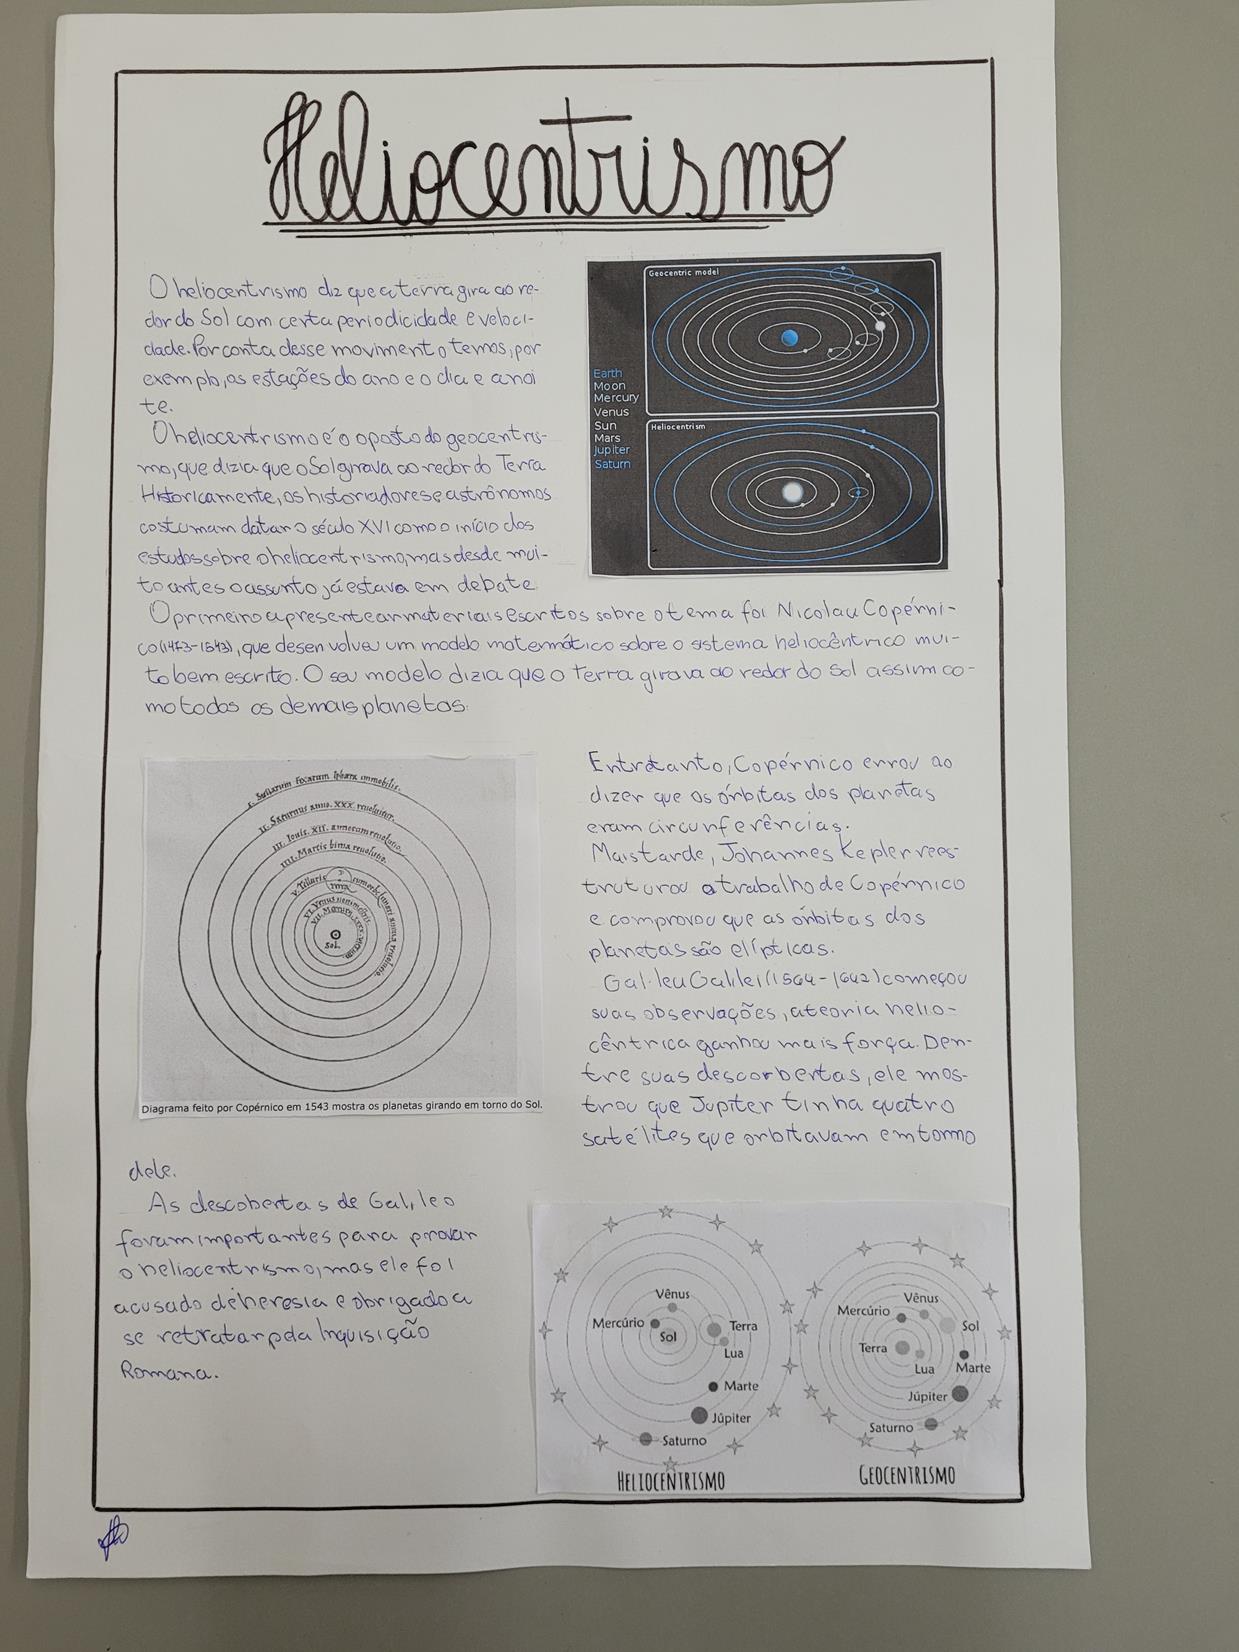 Heliocentrismo
O heliocentrismo diz que a terra gira ao re-
dor do Sol com certa periodicidade e veloci-
dade. Por conta desse movimento temos, por
exemplo, as estações do ano e o dia e a noi
te.
O heliocentrismo é o oposto do geocentris-
mo, que dizia que o Sol girava ao redor do Terra
Historicamente, os historiadores e astrônomos
costumam datar o século XVI como o início dos
estudos sobre o heliocentrismo, mas desde mui-
to antes o assunto já estava em debate.
Geocentric model
Earth
Moon
Mercury
Venus
Sun
Mars
Jupiter
Saturn
Heliocentrism
O primeiro apresentear materiais escritos sobre o tema foi Nicolau Copérni-
co (1473-1543), que desenvolveu um modelo matemático sobre o sistema heliocêntrico mui-
to bem escrito. O seu modelo dizia que o Terra girava ao redor do Sol assim co-
mo todos os demais planetas.
I. Stellarum Fixarum sphæra immobilis.
II. Saturnus anno. XXX. reuoluitur.
III. Iouis. XII. annorum reuolutio.
IIII. Martis bima reuolutio.
V. Telluris
Terra
cum orbe lunari annua reuolutio.
VI. Venus nonimestris
VII. Mercurii
Sol.
Diagrama feito por Copérnico em 1543 mostra os planetas girando em torno do Sol.
Entretanto, Copérnico errou ao
dizer que os órbitas dos planetas
eram circunferências.
Mais tarde, Johannes Kepler rees-
truturou o trabalho de Copérnico
e comprovou que as órbitas dos
planetas são elípticas.
Galileu Galilei (1564-1642) começou
suas observações, a teoria helio-
cêntrica ganhou mais força. Den-
tre suas descorbertas, ele mos-
trou que Jupiter tinha quatro
satélites que orbitavam em torno
dele.
As descobertas de Galileo
foram importantes para provar
o heliocentrismo, mas ele foi
acusado de heresia e obrigado a
se retratar pela Inquisição
Romana.
Vênus
Mercúrio
Sol
Terra
Lua
Marte
Júpiter
Saturno
HELIOCENTRISMO
Vênus
Mercúrio
Sol
Terra
Lua
Marte
Júpiter
Saturno
GEOCENTRISMO